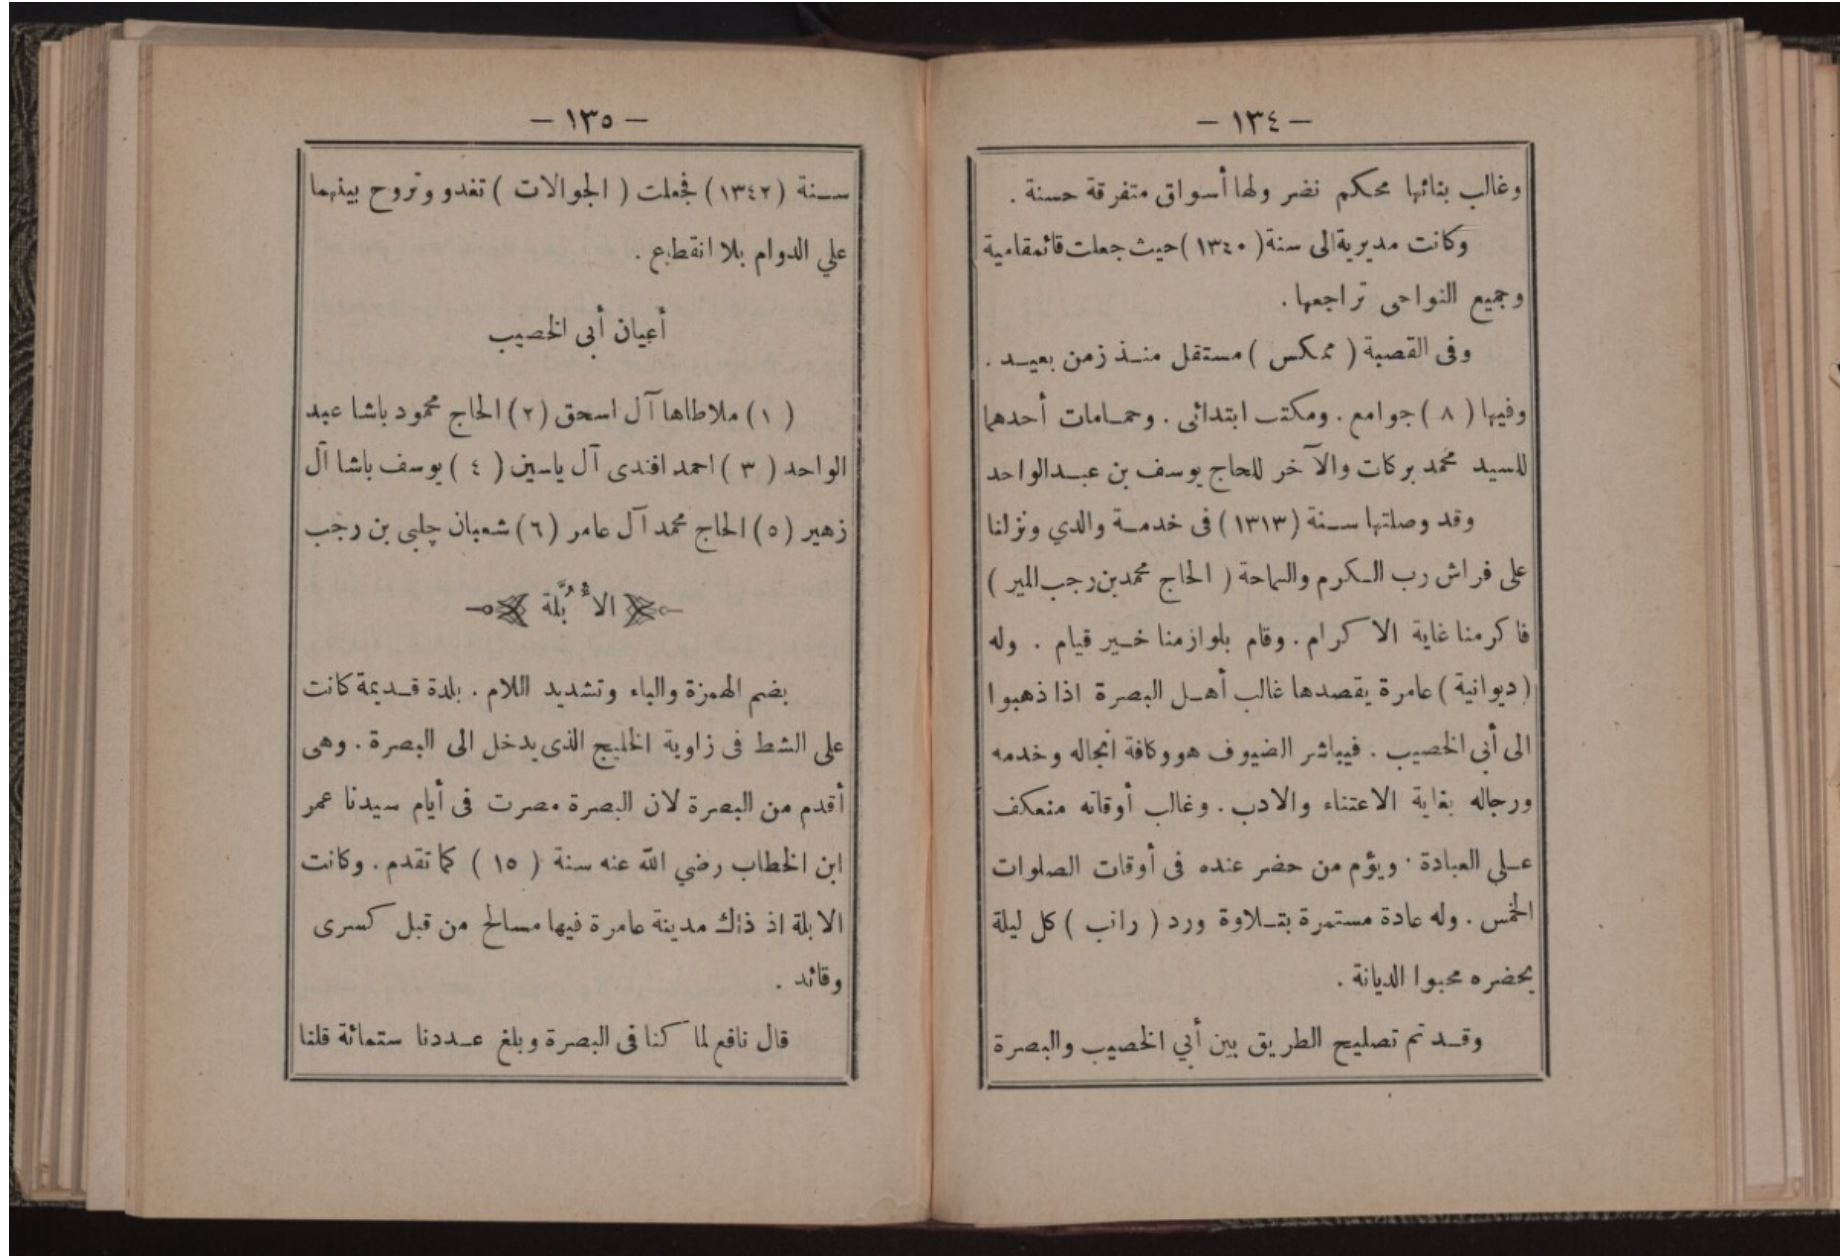 — ١٣٤ —
وغالب بنائها محكم نضر ولها أسواق متفرقة حسنة .
وكانت مديرية الى سنة ( ١٣٤٠ ) حيث جعلت قائمقامية
وجميع النواحى تراجعها .
وفى القصبة ( ممكس ) مستقل منذ زمن بعيد .
وفيها ( ٨ ) جوامع . ومكتب ابتدائى . وحمامات أحدهما
للسيد محمد بركات والآخر للحاج يوسف بن عبد الواحد
وقد وصلتها سنة ( ١٣١٣ ) فى خدمة والدي ونزلنا
على فراش رب الكرم والسماحة ( الحاج محمد بن رجب المير )
فاكرمنا غاية الاكرام . وقام بلوازمنا خير قيام . وله
( ديوانية ) عامرة يقصدها غالب أهل البصرة اذا ذهبوا
الى أبى الخصيب . فيباشر الضيوف هو وكافة انجاله وخدمه
ورجاله بغاية الاعتناء والادب . وغالب أوقاته منعكف
على العبادة . ويؤم من حضر عنده فى أوقات الصلوات
الخمس . وله عادة مستمرة بتلاوة ورد ( راتب ) كل ليلة
يحضره محبوا الديانة .
وقد تم تصليح الطريق بين أبي الخصيب والبصرة
— ١٣٥ —
سنة ( ١٣٤٢ ) فجعلت ( الجوالات ) تغدو وتروح بينهما
علي الدوام بلا انقطاع .
أعيان أبى الخصيب
( ١ ) ملاطاها آل اسحق ( ٢ ) الحاج محمود باشا عبد
الواحد ( ٣ ) احمد افندى آل ياسين ( ٤ ) يوسف باشا آل
زهير ( ٥ ) الحاج محمد آل عامر ( ٦ ) شعبان چلبى بن رجب
الأُبُلَّة
بضم الهمزة والباء وتشديد اللام . بلدة قديمة كانت
على الشط فى زاوية الخليج الذى يدخل الى البصرة . وهى
أقدم من البصرة لان البصرة مصرت فى أيام سيدنا عمر
ابن الخطاب رضي الله عنه سنة ( ١٥ ) كما تقدم . وكانت
الابلة اذ ذاك مدينة عامرة فيها مسالح من قبل كسرى
وقائد .
قال نافع لما كنا فى البصرة وبلغ عددنا ستمائة قلنا